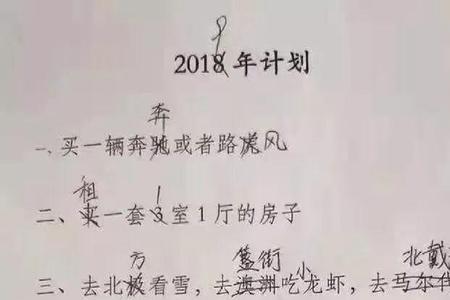 9
2018 年计划
奔
一、买一辆奔驰或者路虎风
租 1
二、买一套3室1厅的房子
方 簋街 小 北戴
三、去北极看雪，去澳洲吃龙虾，去马尔代